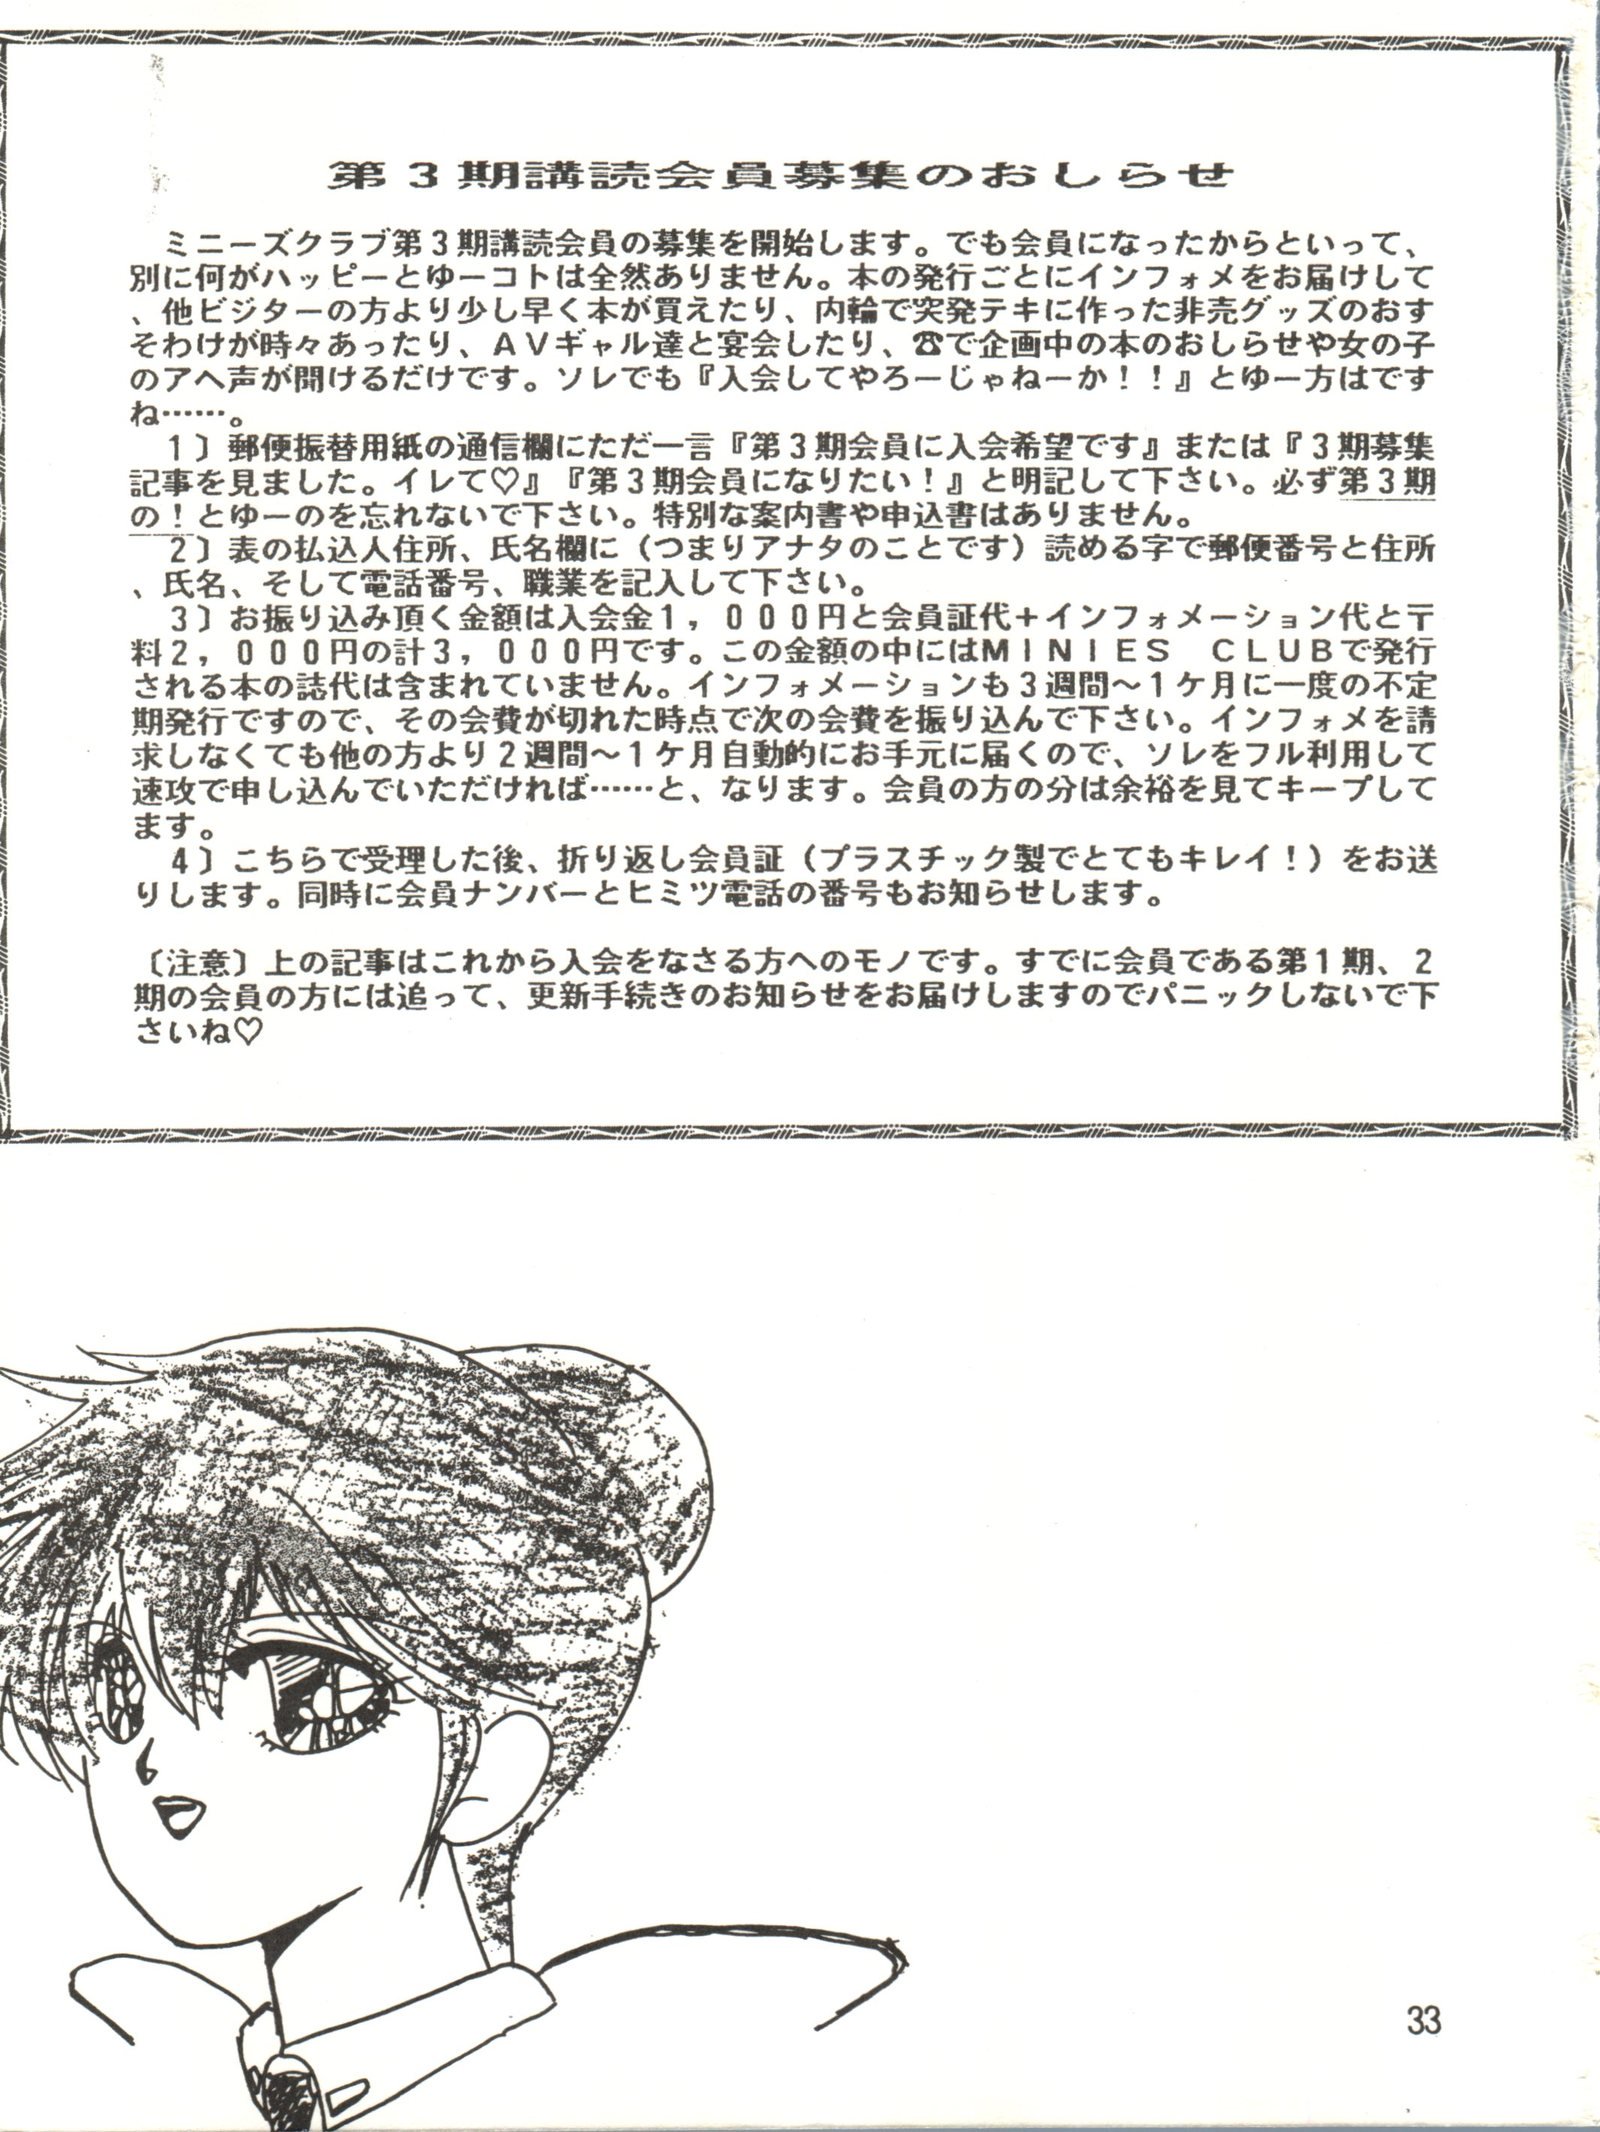 第３期講読会員募集のおしらせ
ミニーズクラブ第３期講読会員の募集を開始します。でも会員になったからといって、
別に何がハッピーとゆーコトは全然ありません。本の発行ごとにインフォメをお届けして
、他ビジターの方より少し早く本が買えたり、内輪で突発テキに作った非売グッズのおす
そわけが時々あったり、ＡＶギャル達と宴会したり、☎で企画中の本のおしらせや女の子
のアヘ声が聞けるだけです。ソレでも『入会してやろーじゃねーか！！』とゆー方はです
ね……。
１〕郵便振替用紙の通信欄にただ一言『第３期会員に入会希望です』または『３期募集
記事を見ました。イレて♡』『第３期会員になりたい！』と明記して下さい。必ず第３期
の！とゆーのを忘れないで下さい。特別な案内書や申込書はありません。
２〕表の払込人住所、氏名欄に（つまりアナタのことです）読める字で郵便番号と住所
、氏名、そして電話番号、職業を記入して下さい。
３〕お振り込み頂く金額は入会金１，０００円と会員証代＋インフォメーション代と〒
料２，０００円の計３，０００円です。この金額の中にはＭＩＮＩＥＳ　ＣＬＵＢで発行
される本の誌代は含まれていません。インフォメーションも３週間～１ケ月に一度の不定
期発行ですので、その会費が切れた時点で次の会費を振り込んで下さい。インフォメを請
求しなくても他の方より２週間～１ケ月自動的にお手元に届くので、ソレをフル利用して
速攻で申し込んでいただければ……と、なります。会員の方の分は余裕を見てキープして
ます。
４〕こちらで受理した後、折り返し会員証（プラスチック製でとてもキレイ！）をお送
りします。同時に会員ナンバーとヒミツ電話の番号もお知らせします。
〔注意〕上の記事はこれから入会をなさる方へのモノです。すでに会員である第１期、２
期の会員の方には追って、更新手続きのお知らせをお届けしますのでパニックしないで下
さいね♡
33